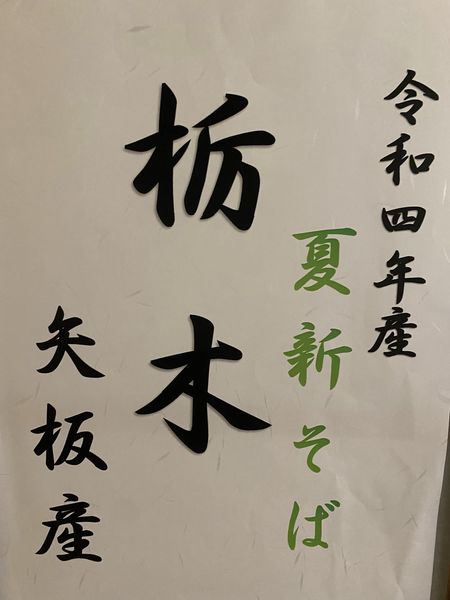 令和四年産
夏新そば
栃木
矢板産